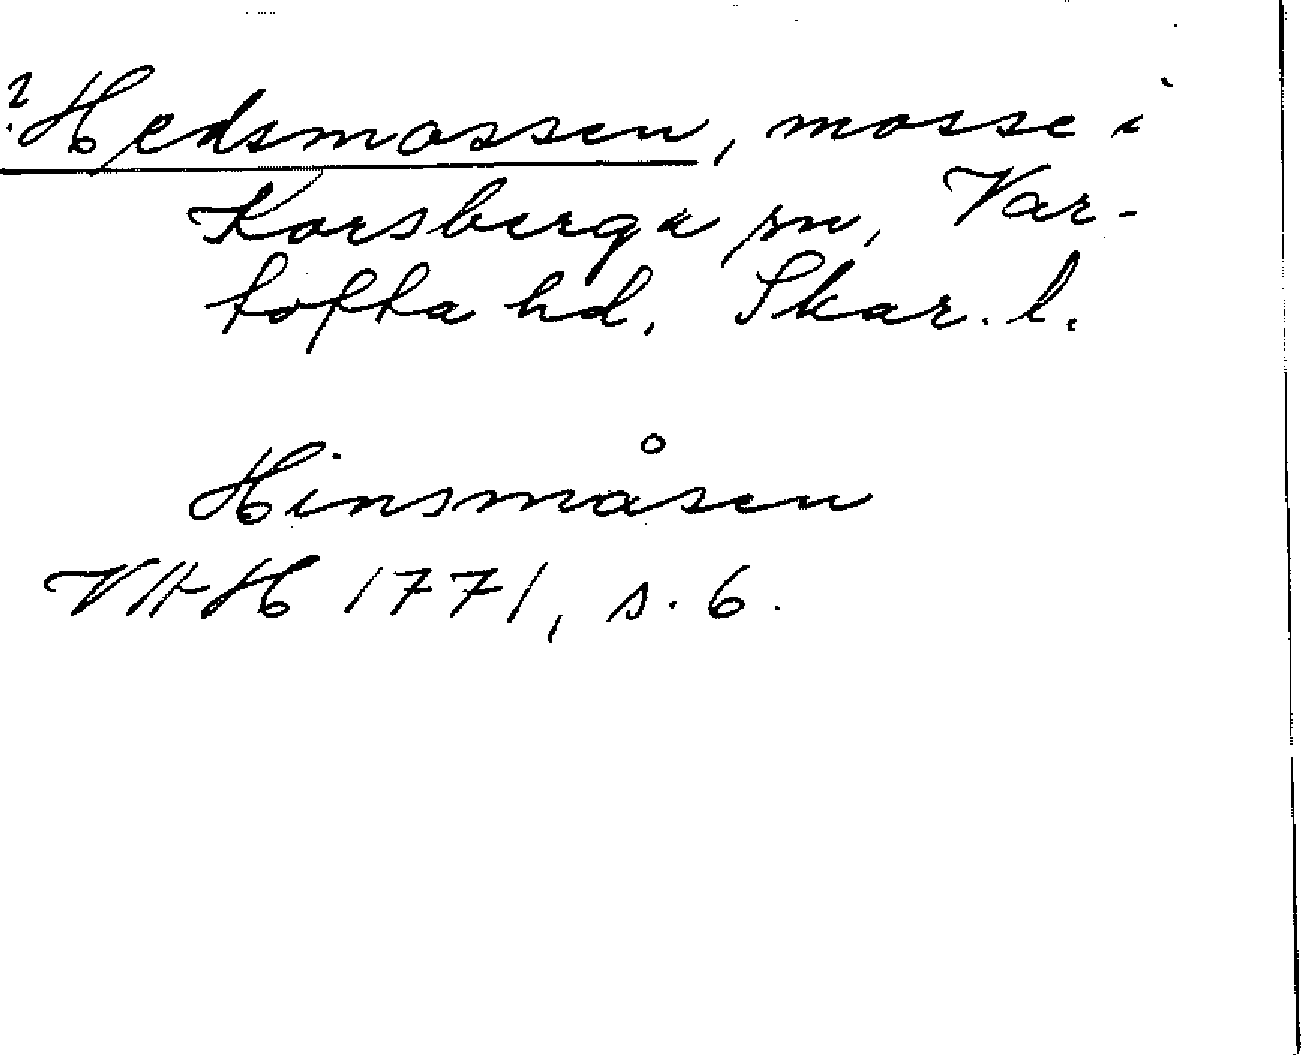 ?Hedsmossen, mosse i
Korsberga sn, Var-
tofta hd, Skar. l.
Hinsmåsen
VHH 1771, s. 6.